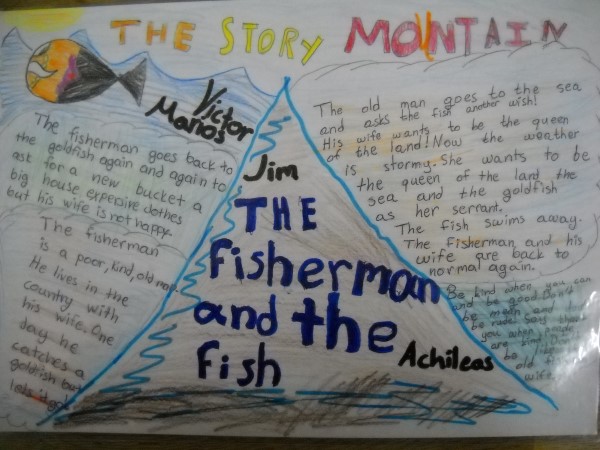 THE STORY MOUNTAIN
Victor
Manos
The fisherman goes back to
the goldfish again and again to
ask for a new bucket a
big house expensive clothes
but his wife is not happy.
The fisherman
is a poor, kind, old man.
He lives in the
country with
his wife. One
day he
catches a
goldfish but
lets it go!
Jim
THE
Fisherman
and the
fish
Achileas
The old man goes to the sea
and asks the fish another wish!
His wife wants to be the queen
of the land! Now the weather
is stormy. She wants to be
the queen of the land the
sea and the goldfish
as her servant.
The fish swims away.
The fisherman and his
wife are back to
normal again.
Be kind when you can
and be good. Don't
be mean and
be rude. Say thank
you when people
are kind. Don't
be
old
wife